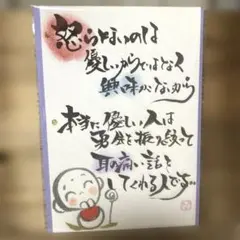 怒らないのは
優しいからではなく
興味がないから
本当に優しい人は
勇気を振り絞って
耳の痛い話を
してくれる人です。